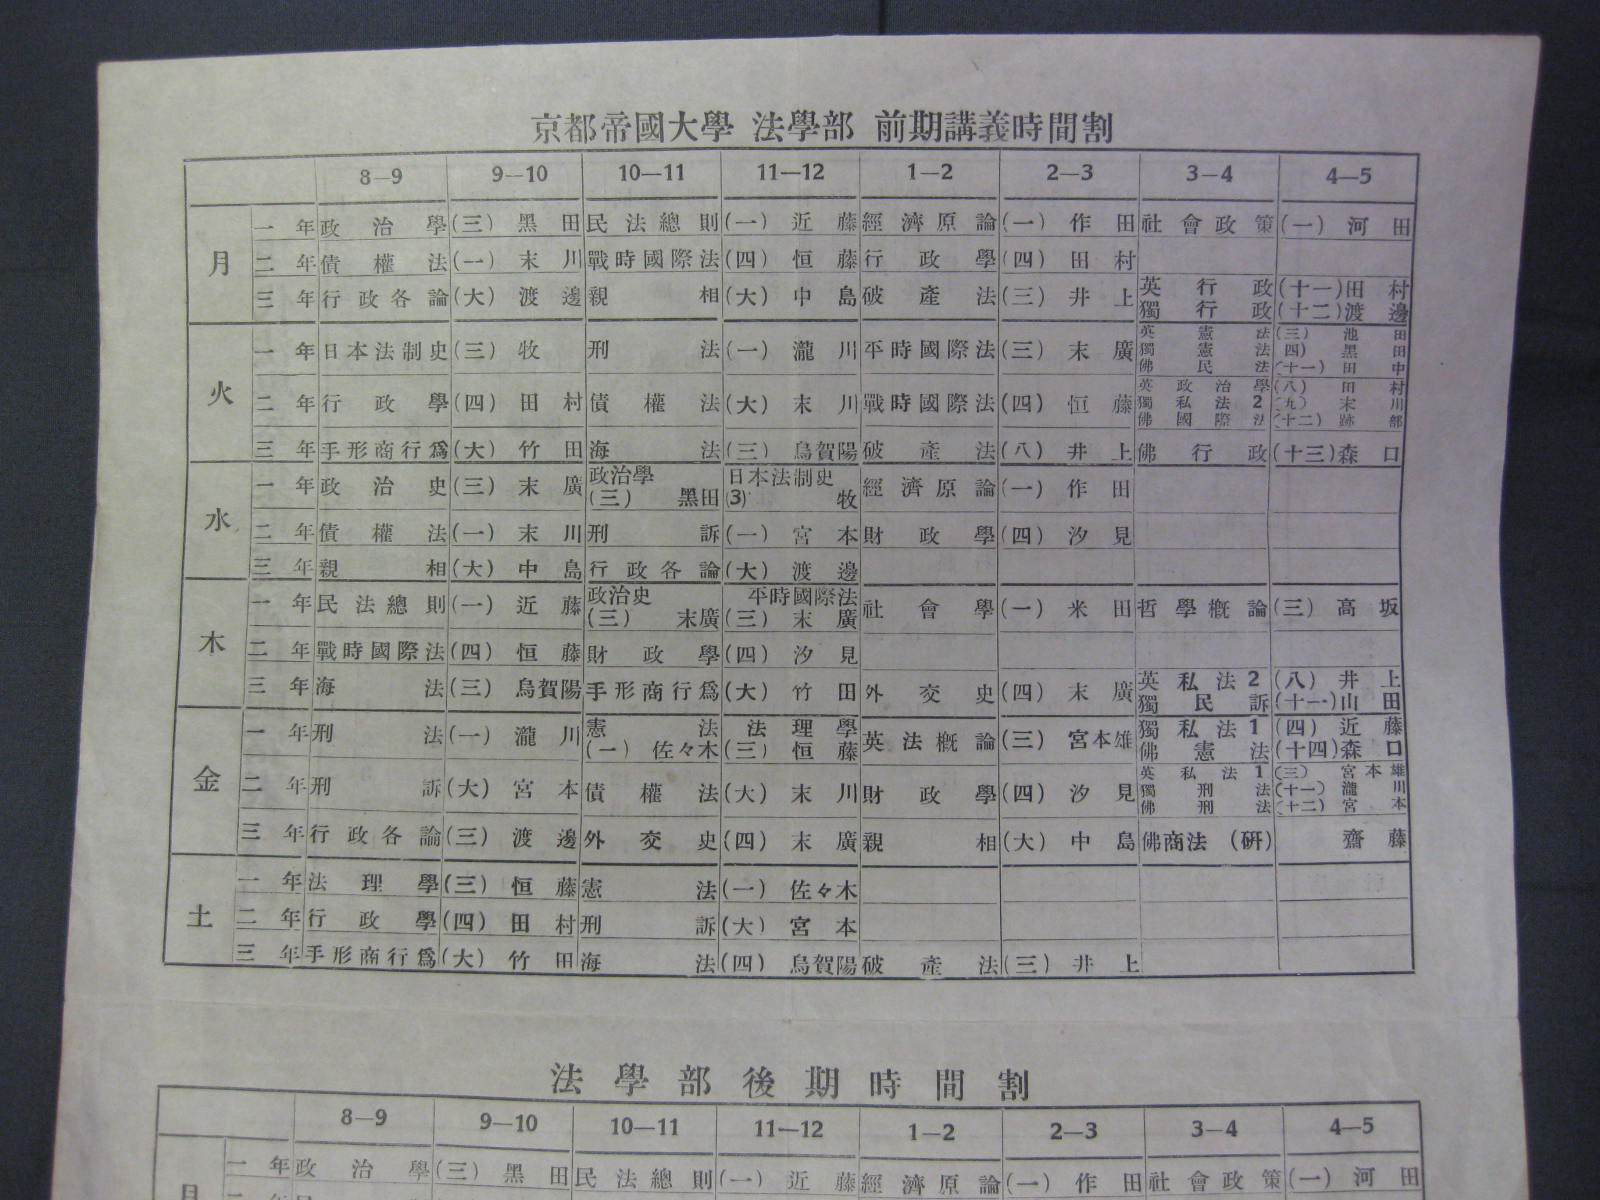 京都帝國大學 法學部 前期講義時間割
8—9 9—10 10—11 11—12 1—2 2—3 3—4 4—5
月
一年 政治學 (三) 黑田 民法總則 (一) 近藤 經濟原論 (一) 作田 社會政策 (一) 河田
二年 債權法 (一) 末川 戰時國際法 (四) 恒藤 行政學 (四) 田村
三年 行政各論 (大) 渡邊 親相 (大) 中島 破產法 (三) 井上 英行政 (十一) 田村
獨行政 (十二) 渡邊
火
一年 日本法制史 (三) 牧 刑法 (一) 瀧川 平時國際法 (三) 末廣 英憲法 (三) 池田
獨憲法 (四) 黑田
佛民法 (十一) 田中
二年 行政學 (四) 田村 債權法 (大) 末川 戰時國際法 (四) 恒藤 英政治學 (八) 田村
獨私法2 (九) 末川
佛國際法 (十二) 跡部
三年 手形商行爲 (大) 竹田 海法 (三) 烏賀陽 破產法 (八) 井上 佛行政 (十三) 森口
水
一年 政治史 (三) 末廣 政治學 (三) 黑田 日本法制史 (3) 牧 經濟原論 (一) 作田
二年 債權法 (一) 末川 刑訴 (一) 宮本 財政學 (四) 汐見
三年 親相 (大) 中島 行政各論 (大) 渡邊
木
一年 民法總則 (一) 近藤 政治史 (三) 末廣 平時國際法 (三) 末廣 社會學 (一) 米田 哲學槪論 (三) 高坂
二年 戰時國際法 (四) 恒藤 財政學 (四) 汐見
三年 海法 (三) 烏賀陽 手形商行爲 (大) 竹田 外交史 (四) 末廣 英私法2 (八) 井上
獨民訴 (十一) 山田
金
一年 刑法 (一) 瀧川 憲法 (一) 佐々木 法理學 (三) 恒藤 英法槪論 (三) 宮本雄 獨私法1 (四) 近藤
佛憲法 (十四) 森口
二年 刑訴 (大) 宮本 債權法 (大) 末川 財政學 (四) 汐見 英私法1 (三) 宮本雄
獨刑法 (十一) 瀧川
佛刑法 (十二) 宮本
三年 行政各論 (三) 渡邊 外交史 (四) 末廣 親相 (大) 中島 佛商法 (研) 齋藤
土
一年 法理學 (三) 恒藤 憲法 (一) 佐々木
二年 行政學 (四) 田村 刑訴 (大) 宮本
三年 手形商行爲 (大) 竹田 海法 (四) 烏賀陽 破產法 (三) 井上
法學部後期時間割
8—9 9—10 10—11 11—12 1—2 2—3 3—4 4—5
月
一年 政治學 (三) 黑田 民法總則 (一) 近藤 經濟原論 (一) 作田 社會政策 (一) 河田